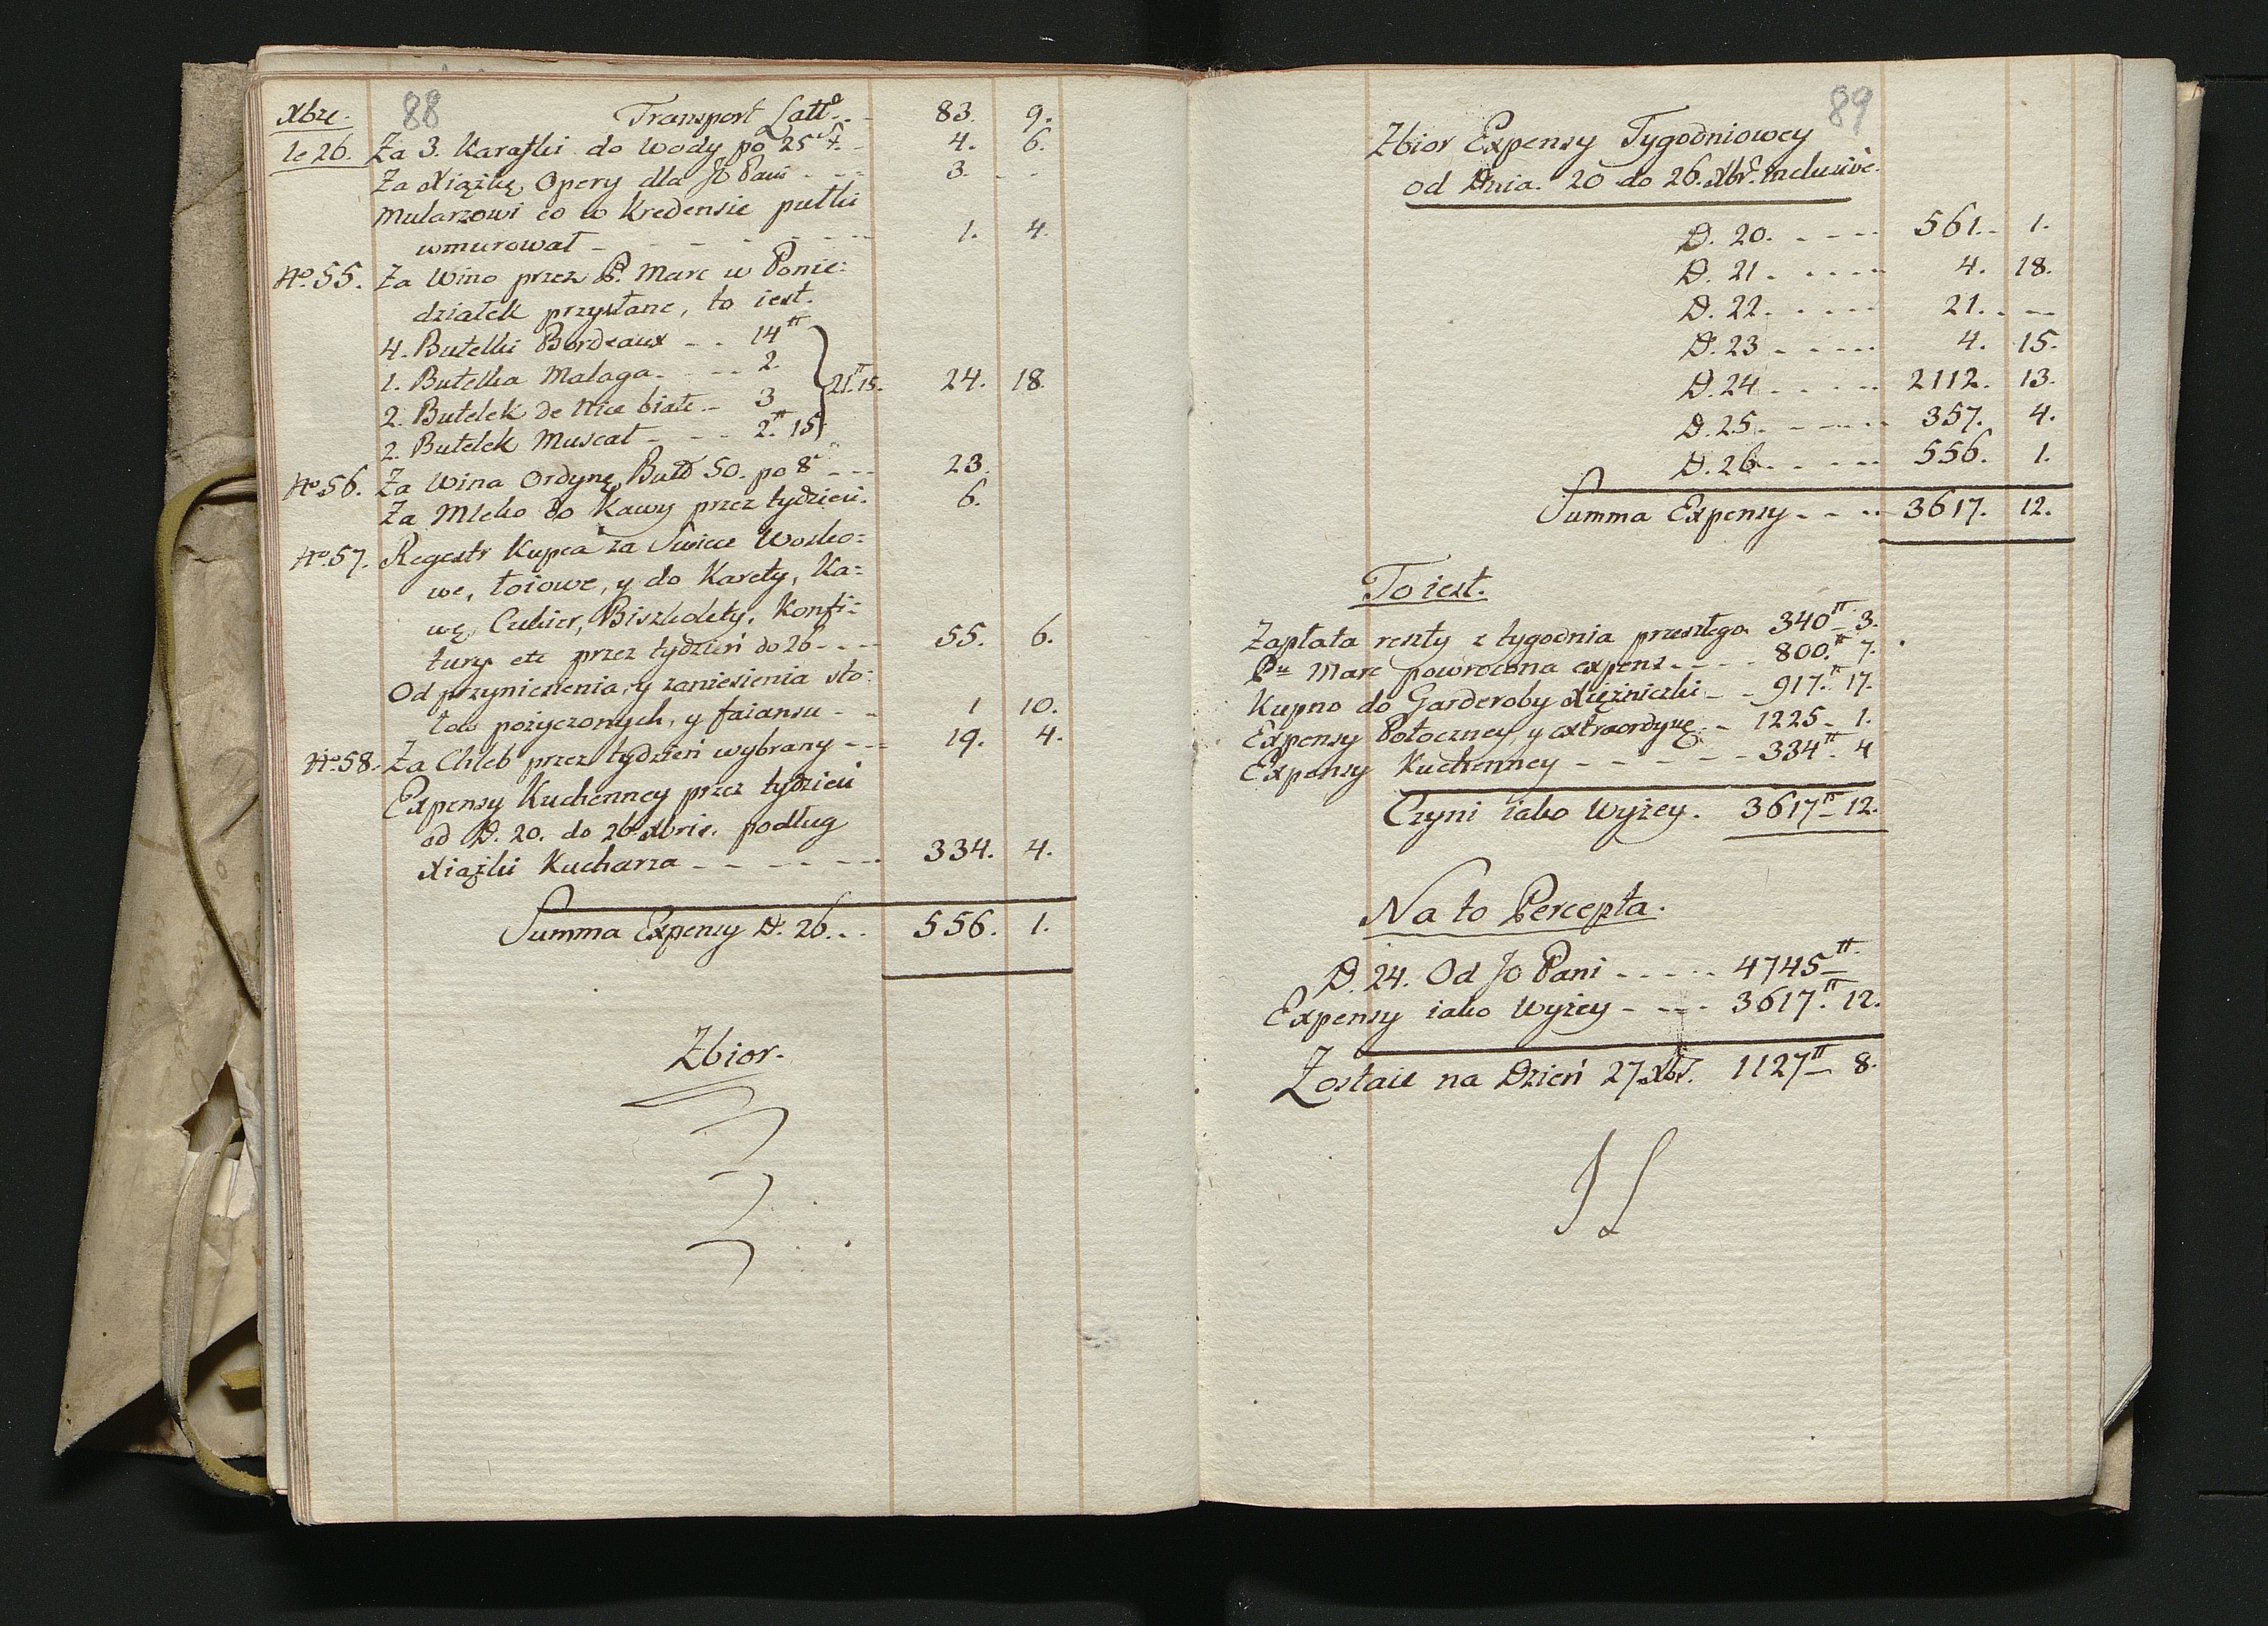 88
Xbre. Transport Latt. 83. 9.
le 26. Za 3. Karafki do Wody po 25 ƒ. 4. 6.
Za Xiążkę Opery dla JO Pani 3. - -
Mularzowi co w Kredensie pułki
wmurował - - - - - - 1. 4.
No. 55. Za Wino przez P. Marc w Ponie:
działek przysłane, to iest.
4. Butelki Bordeaux - - 14 ₶
1. Butelka Malaga - - - 2.
2. Butelek de Nice białe - 3 21.₶ 15. 24. 18.
2. Butelek Muscat - - - 2.₶ 15
No. 56. Za Wina Ordynę Butt 50. po 8 - - - 23.
Za Mleko do Kawy przez tydzień. 6.
No. 57. Regestr Kupca za Swiece Wosko:
we, łoiowe, y do Karety, Ka:
wę, Cukier, Biszkokty, Konfi:
tury etc przez tydzień do 26 - - - 55. 6.
Od przyniesienia, y zaniesienia sto:
łow pożyczonych, y faiansu - - 1 10.
No. 58. Za Chleb przez tydzień wybrany - - - 19. 4.
Expensy Kuchenney przez tydzień
od D. 20. do 26 Xbris. podług
Xiążki Kucharza - - - - - - 334. 4.
Summa Expensy D. 26. - - 556. 1.
Zbior.
89
Zbior Expensy Tygodniowey
od Dnia. 20 do 26. Xbr. Inclusive.
D. 20. - - - - 561. - 1.
D. 21 - - - - 4. 18.
D. 22 - - - - 21. - -
D. 23 - - - - 4. 15.
D. 24 - - - - 2112. 13.
D. 25 - - - - 357. 4.
D. 26 - - - - 556. 1.
Summa Expensy - - - 3617. 12.
To iest.
Zapłata reszty z tygodnia przeszłego 340 ₶ 3.
Pu Marc powrocona expens - - - - 800.₶ 7.
Kupno do Garderoby Xiężniczki - - 917.₶ 17.
Expensy Potoczney, y extraordynę - - 1225 - 1.
Expensy Kuchenney - - - - - - 334 ₶ 4
Czyni iako Wyżey. 3617 ₶ 12.
Na to Percepta.
D. 24. Od JO Pani - - - - - 4745 ₶
Expensy iako Wyżey - - - - 3617.₶ 12.
Zostaie na Dzień 27 Xbr. 1127 ₶ 8.